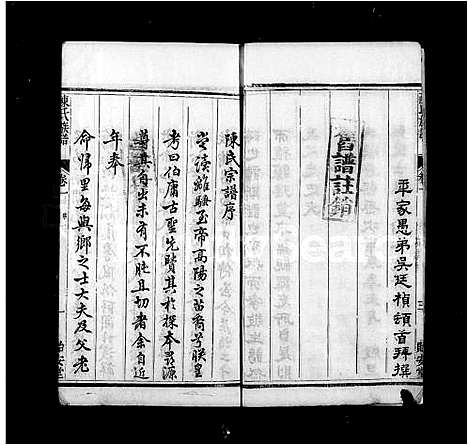 平家愚弟吳廷楨頓首拜撰
舊譜註銷
陳氏宗譜序
嘗讀離騷至帝高陽之苗裔兮朕皇
考曰伯庸古聖先賢其於探本尋源
尊其自出未有不肫且切者余自近
年奉
命歸里每與鄉之士大夫及父老
陳氏族譜
卷一